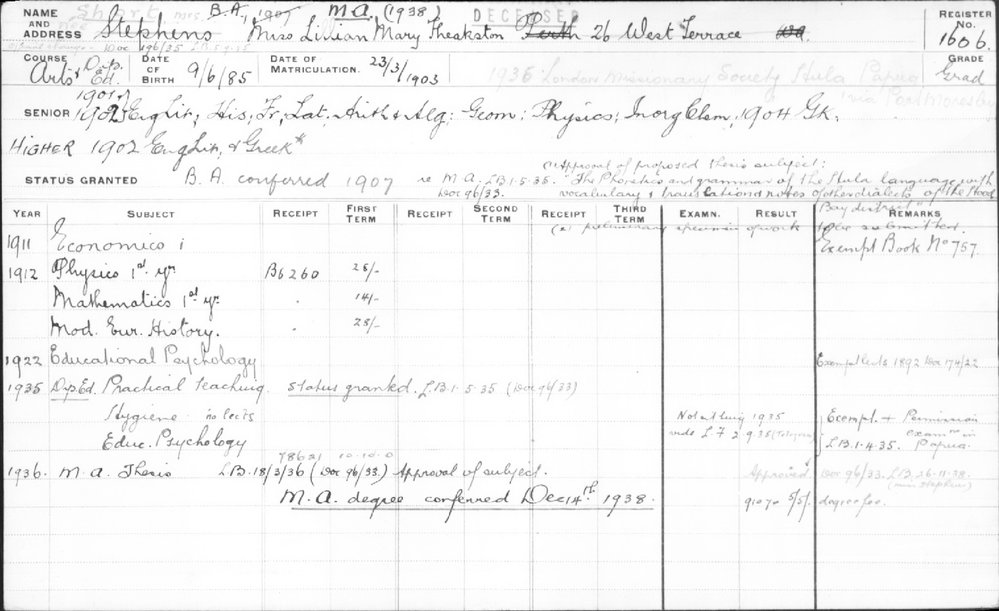 Short Mrs. B.A., 1907 M.A. (1938) DECEASED
NAME AND ADDRESS Stephens Miss Lillian Mary Theakston Perth 26 West Terrace WA REGISTER No. 1606.
Doc 196/35 L.B. 5.9.15
COURSE Arts & Dip. Ed. DATE OF BIRTH 9/6/85 DATE OF MATRICULATION. 23/3/1903 GRADE Grad
1935 London Missionary Society Hula Papua
via Port Moresby
1901 &
SENIOR 1902 Eng Lit, His, Fr, Lat. Arith & Alg: Geom: Physics; Inorg Chem, 1904 GK.
HIGHER 1902 Eng Lit, & Greek*
(1) Approval of proposed thesis subject:
STATUS GRANTED B.A. conferred 1907 re M.A. L.B. 1.5.35. "The Phonetics and grammar of the Hula language with
Doc 96/33. vocabulary & translations & notes of other dialects of the Hood
Bay district"
YEAR SUBJECT RECEIPT FIRST TERM RECEIPT SECOND TERM RECEIPT THIRD TERM EXAMN. RESULT REMARKS
(2) preliminary specimen of work to be submitted.
1911 Economics i Exempt Book No 757.
1912 Physics 1st yr B6260 28/-
Mathematics 1st yr. " 14/-
Mod. Eur. History. " 28/-
1922 Educational Psychology Exempt lects 1892 Doc 174/22
1935 Dip Ed. Practical Teaching. Status granted. L.B. 1.5.35 (Doc 96/33)
Hygiene no lects Not sitting 1935 Exempt. + Permission
Educ. Psychology vide L.F. 2.9.35 (Telegram) L.B. 1.4.35. examn in Papua.
78621 10.10.0
1936. M.A. Thesis L.B. 18/3/36 (Doc 96/33.) Approval of subject. Approved Doc 96/33. L.B. 26.11.38
(Mrs Stephens)
M.A. degree conferred Dec 14th 1938. 91070 5/5/. degree fee.